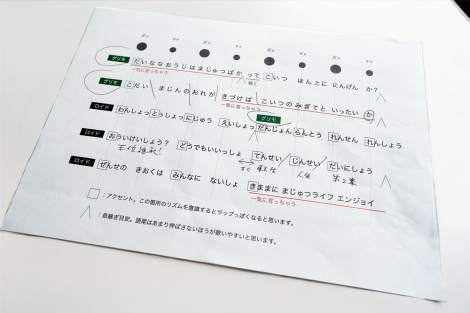 ズン チャ ズン チャ ズン チャ ズン チャ
グリモ だいななおうじはまじゅつばかってこいつ ほんとに にんげん か?
一気に言っちゃう
グリモ こだい まじんのおれが きづけば こいつのみぎてと いったい か
一気に言っちゃう
グリモ
ロイド わんしょっとっしょっとにじゅう えいしょっ だんじょん らんとう れんせん れんしょう
ロイド おういけいしょう? どうでもいいっしょ てんせい/じんせい だいにしょう
王位継承? 転生 人生 第2章
ロイド ぜんせの きおくは みんなに ないしょ きままに まじゅつライフ エンジョイ
一気に言っちゃう
□:アクセント。この箇所のリズムを意識するとラップっぽくなると思います。
∧:息継ぎ目安。語尾はあまり伸ばさないほうが歌いやすいと思います。